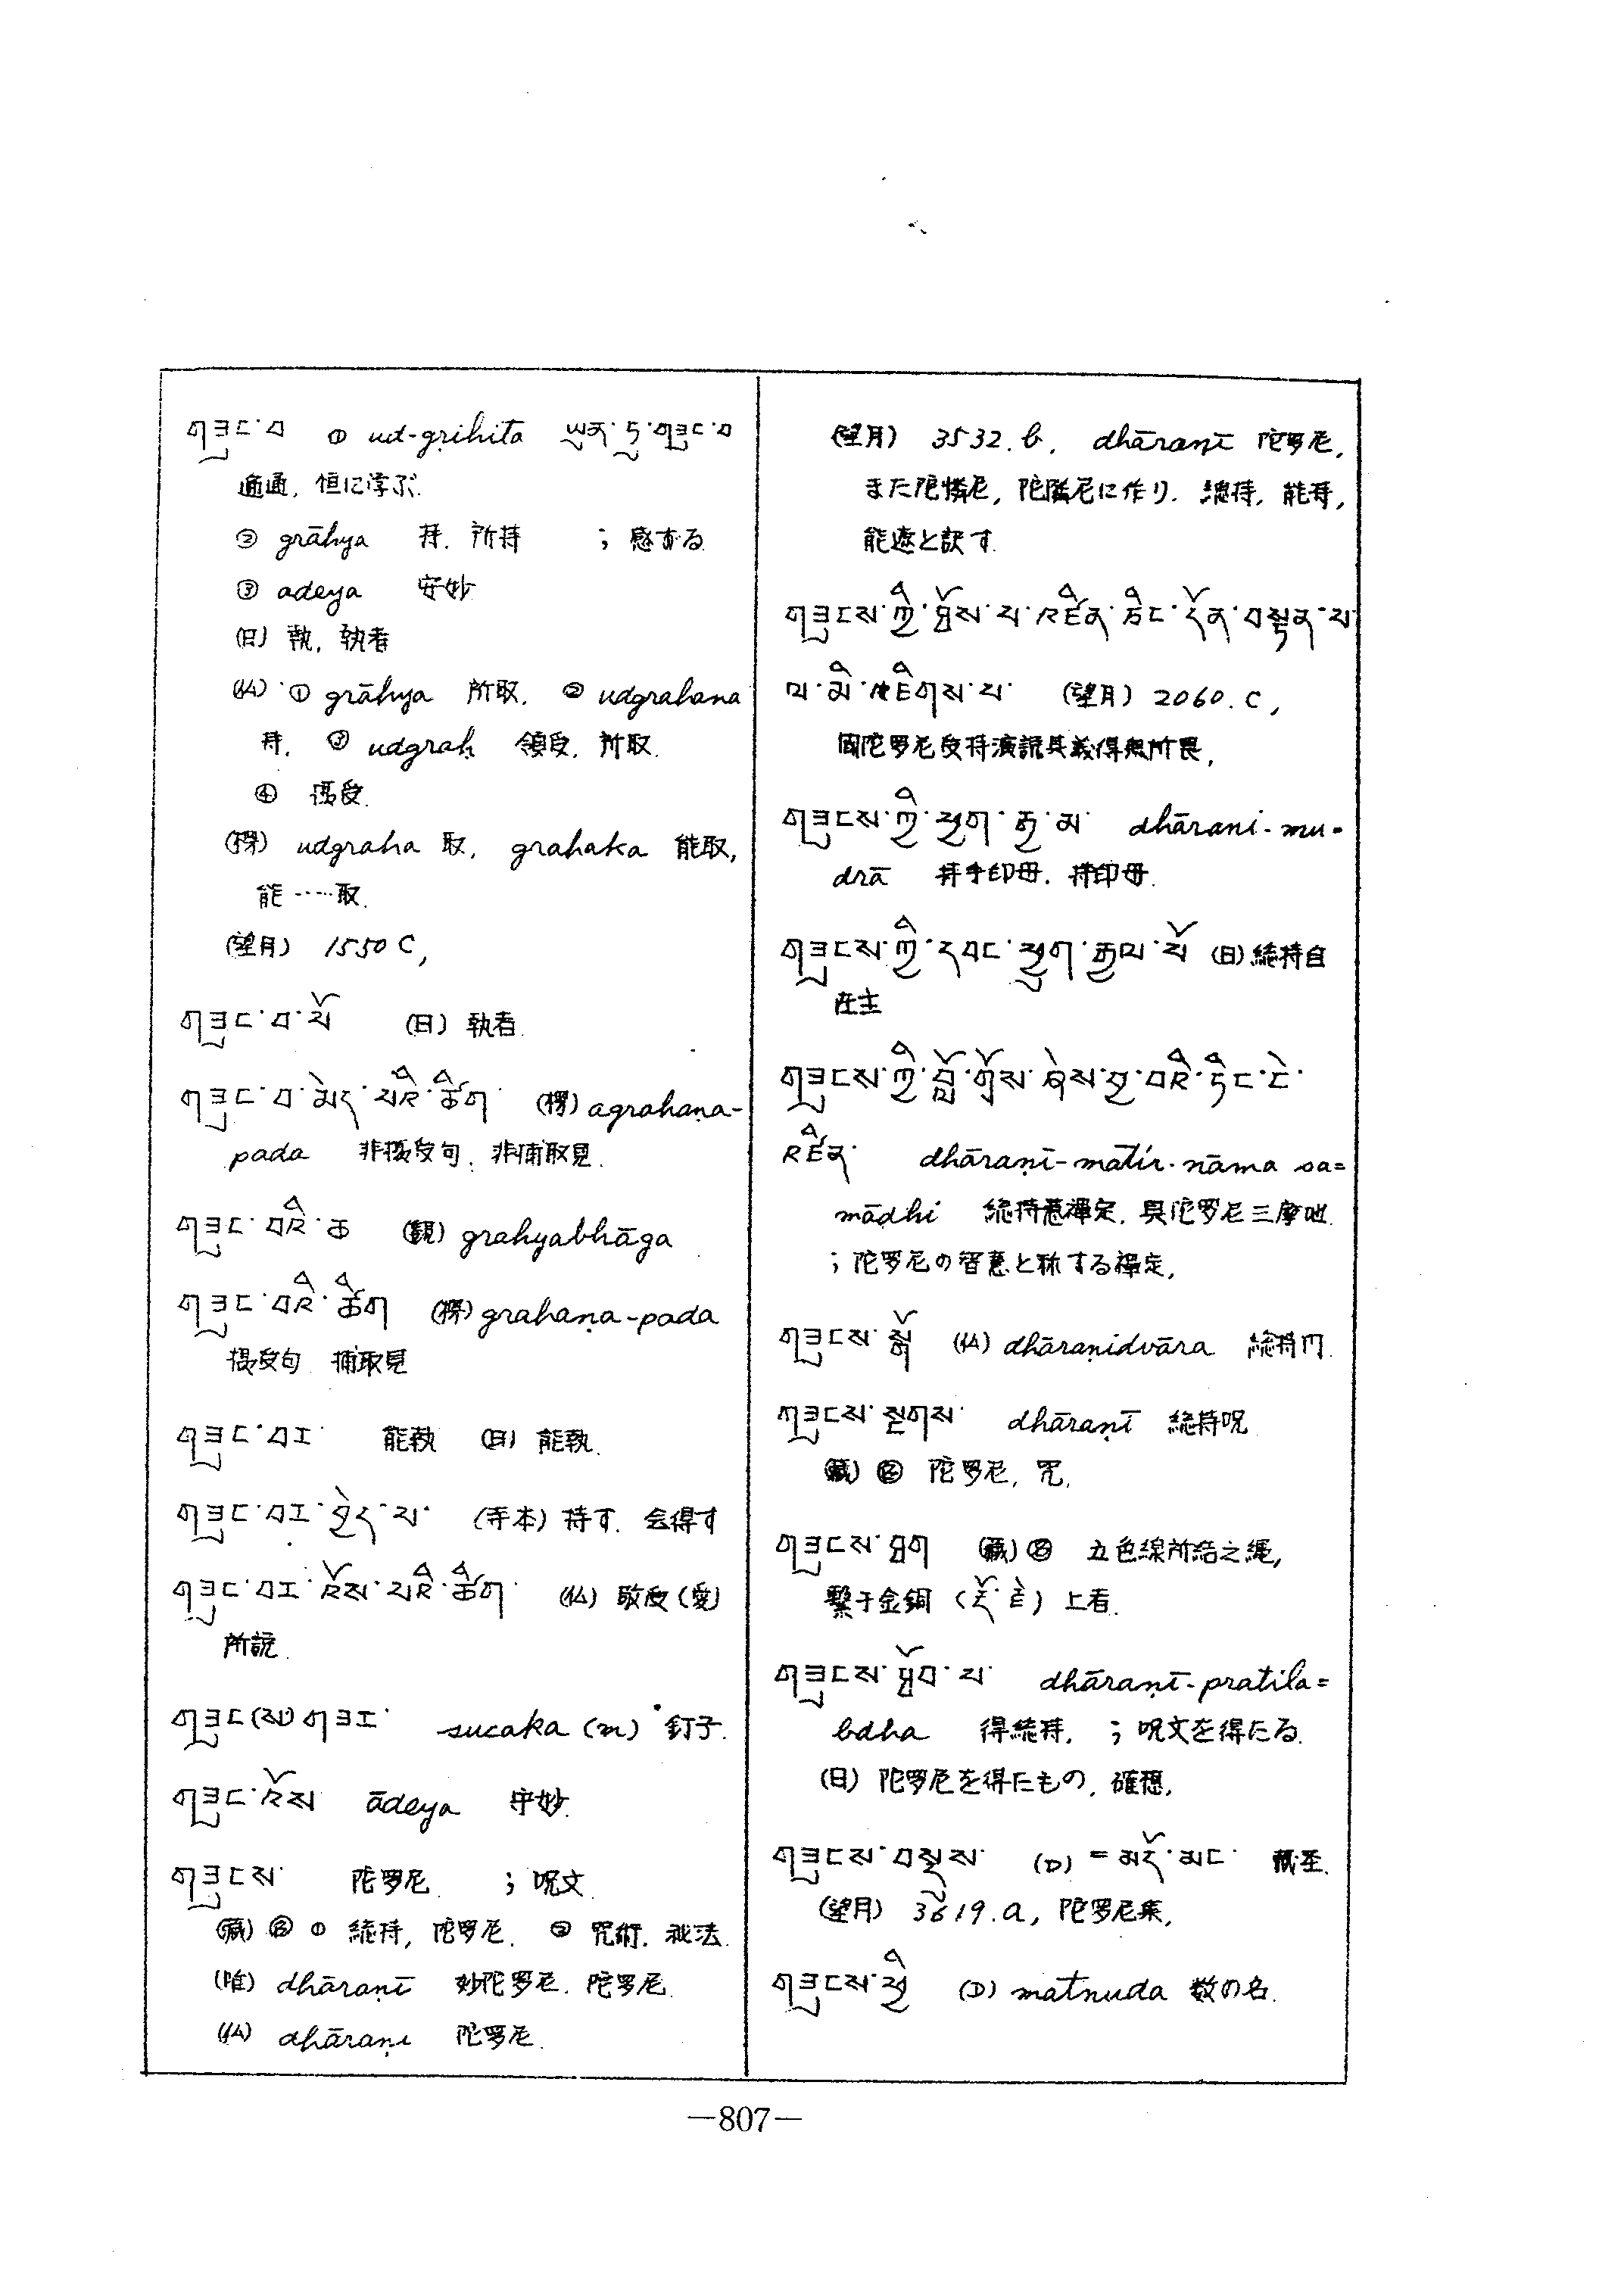 གཟུང་བ ① ud-gṛihita ཡུན་དུ་གཟུང་བ
通, 恒に学ぶ.
② grāhya 持. 所持 ; 感ずる
③ adeya 守妙
(日) 執, 執者
(仏) ① grāhya 所取. ② udgrahana
持. ③ udgrah 領受, 所取.
④ 摂受.
(楞) udgraha 取, grahaka 能取,
能……取.
(望月) 1550 C,
གཟུང་བ་པོ (日) 執者.
གཟུང་བ་མེད་པའི་ཚིག (楞) agrahaṇa-
pada 非摂受句. 非捕取見.
གཟུང་བའི་ཆ (観) grahyabhāga
གཟུང་བའི་ཚིག (楞) grahaṇa-pada
摂受句 捕取見
གཟུང་བར་ 能執 (日) 能執.
གཟུང་བར་བྱེད་པ་ (寺本) 持す. 会得す
གཟུང་བར་འོས་པའི་ཚིག་ (仏) 敬受(愛)
所説.
གཟུང(ས)གཟེར་ sucaka (m) 釘子.
གཟུང་འོས ādeya 守妙.
གཟུངས་ 陀罗尼. ; 呪文
(蔵) ① 総持, 陀罗尼. ② 咒術. 秘法.
(唯) dhāraṇī 妙陀罗尼. 陀罗尼.
(仏) dhāraṇi 陀罗尼.
(望月) 3532.b, dhāraṇī 陀罗尼,
また陀憐尼, 陀隣尼に作り. 總持, 能持,
能遮と訳す.
གཟུངས་ཀྱི་ཐོས་པ་འཛིན་ཅིང་དོན་བསྟན་པ་
ལ་མི་འཇིགས་པ་ (望月) 2060.C,
聞陀罗尼受持演説其義得無所畏,
གཟུངས་ཀྱི་ཕྱག་རྒྱ་མ་ dhārani-mu-
drā 持手印母. 持印母.
གཟུངས་ཀྱི་དབང་ཕྱུག་རྒྱལ་པོ (日) 総持自
在主
གཟུངས་ཀྱི་བློ་གྲོས་ཞེས་བྱ་བའི་ཏིང་ངེ་
འཛིན་ dhāraṇī-matir-nāma sa=
mādhi 総持慧禅定. 具陀罗尼三摩地.
; 陀罗尼の智慧と称する禅定,
གཟུངས་སྒོ (仏) dhāraṇidvāra 総持門.
གཟུངས་སྔགས་ dhāraṇī 総持呪
(蔵) 陀罗尼, 咒,
གཟུངས་ཐག (蔵) 五色線所結之縄,
繋于金鋼 (རྡོ་རྗེ) 上者.
གཟུངས་ཐོབ་པ་ dhāraṇī-pratila=
bdha 得総持, ; 呪文を得たる.
(日) 陀罗尼を得たもの,
གཟུངས་བསྡུས་ (D) = མདོ་མང་
(望月) 3619.a, 陀罗尼集,
གཟུངས་ཕྱི (D) matnuda 数の名.
—807—